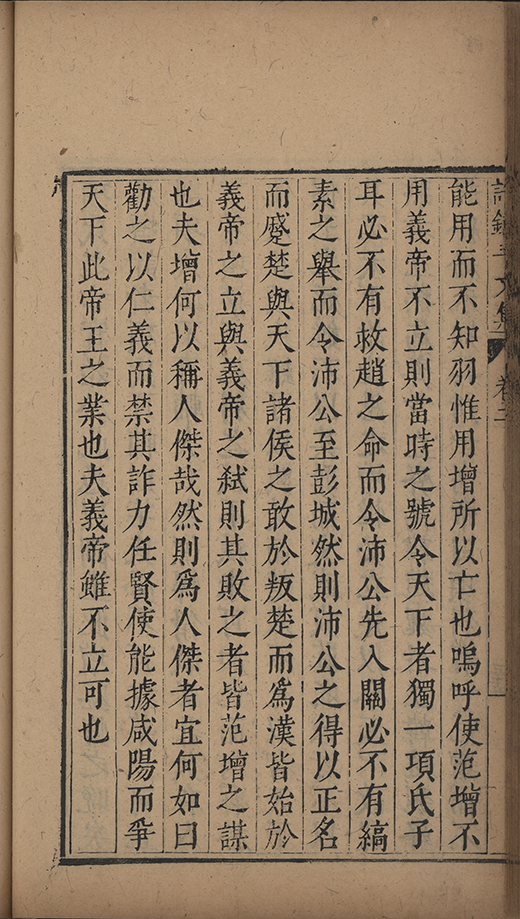 能用而不知羽惟用增所以亡也嗚呼使范增不
用義帝不立則當時之號令天下者獨一項氏子
耳必不有救趙之命而令沛公先入關必不有縞
素之舉而令沛公至彭城然則沛公之得以正名
而蹙楚與天下諸侯之敢於叛楚而爲漢皆始於
義帝之立與義帝之弒則其敗之者皆范增之謀
也夫增何以稱人傑哉然則爲人傑者宜何如曰
勸之以仁義而禁其詐力任賢使能據咸陽而爭
天下此帝王之業也夫義帝雖不立可也